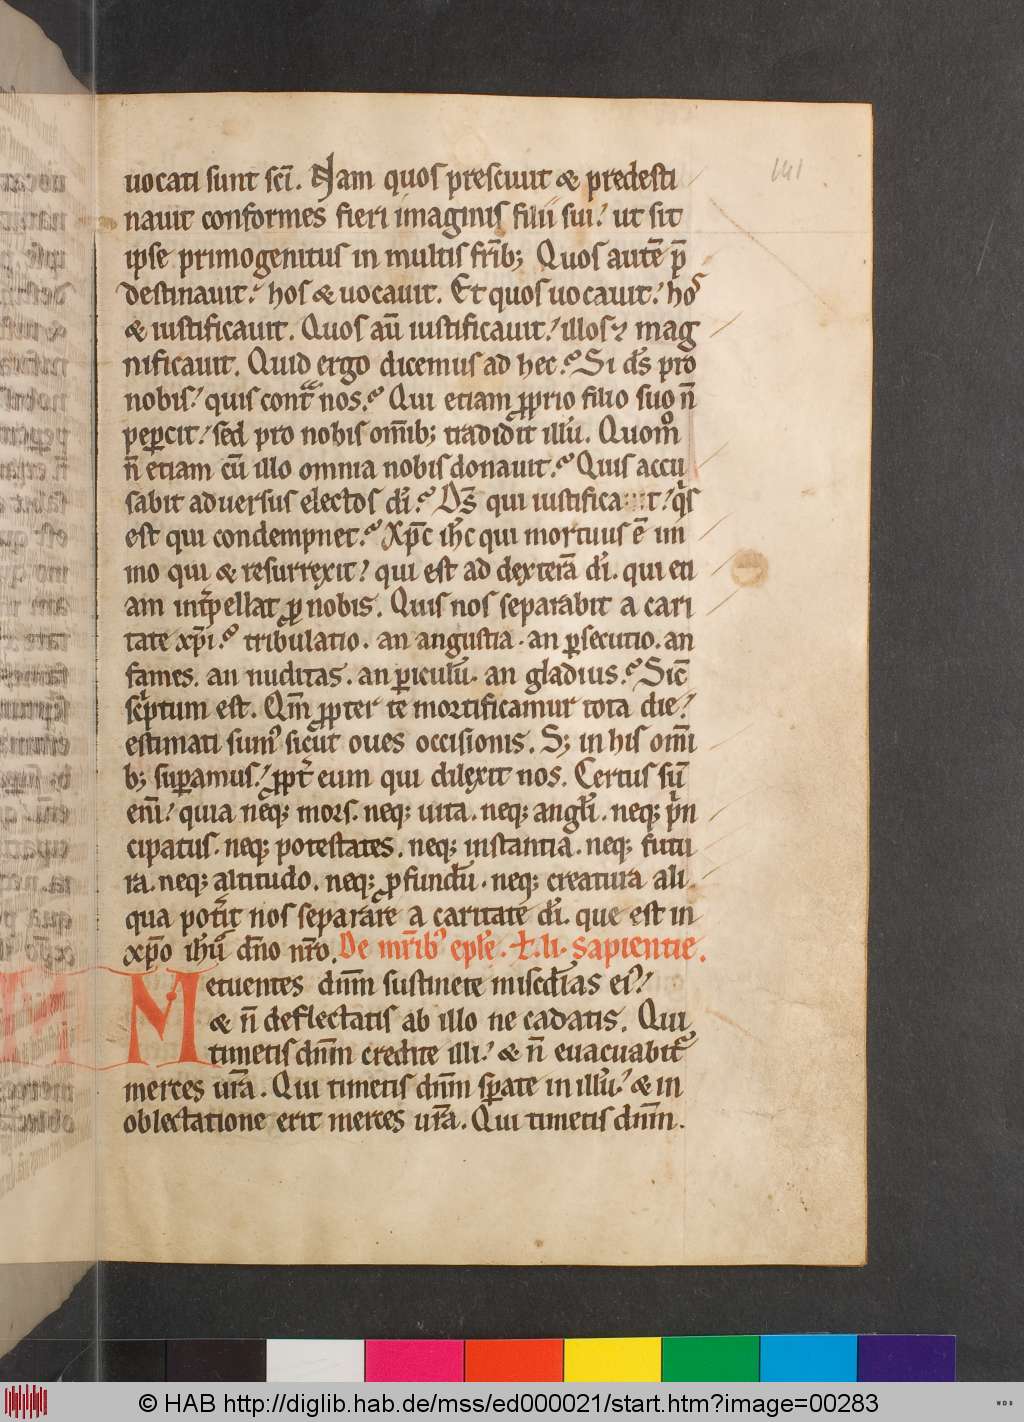 141
uocati sunt sc̄i. Nam quos presciuit & predesti
nauit conformes fieri imaginis filii sui; ut sit
ipse primogenitus in multis fr̄ib; Quos autē p̄
destinauit; hos & uocauit. Et quos uocauit; hos
& iustificauit. Quos aū iustificauit; illos & mag
nificauit. Quid ergo dicemus ad hec? Si d̄s pro
nobis; quis cont̄ nos? Qui etiam ꝓprio filio suo n̄
peꝑcit; sed pro nobis om̄ib; tradidit illū. Quom̊
n̄ etiam cū illo omnia nobis donauit? Quis accu
sabit aduersus electos dī? D̄s qui iustifica t; q̄s
est qui condempnet? Xp̄c ih̄c qui mortuus ē im
mo qui & resurrexit; qui est ad dexterā dī. qui eti
am int̄pellat ꝓ nobis. Quis nos separabit a cari
tate xp̄i? tribulatio. an angustia. an ꝑsecutio. an
fames. an nuditas. an ꝑiculū. an gladius? Sic̄
sc̄ptum est. Qm̄ ꝓpter te mortificamur tota die;
estimati sumꝰ sicut oues occisionis. S; in his om̄i
b; suꝑamus; ꝓpt̄ eum qui dilexit nos. Certus sū
enī; quia neq; mors. neq; uita. neq; angłi. neq; p̄n
cipatus. neq; potestates. neq; instantia. neq; futu
ra. neq; altitudo. neq; ꝓfundū. neq; creatura ali
qua pot̄it nos separare a caritate dī. que est in
xp̄o ih̄u dn̄o nr̄o. De mr̄ibꝰ epłe. ł. li. sapientie.
Metuentes dnm̄ sustinete misedīas eiꝰ;
& n̄ deflectatis ab illo ne cadatis. Qui
timetis dnm̄ credite illi; & n̄ euacuabit᷑
merces ur̄a. Qui timetis dnm̄ sꝑate in illū; & in
oblectatione erit merces ur̄a. Qui timetis dnm̄.
© HAB http://diglib.hab.de/mss/ed000021/start.htm?image=00283